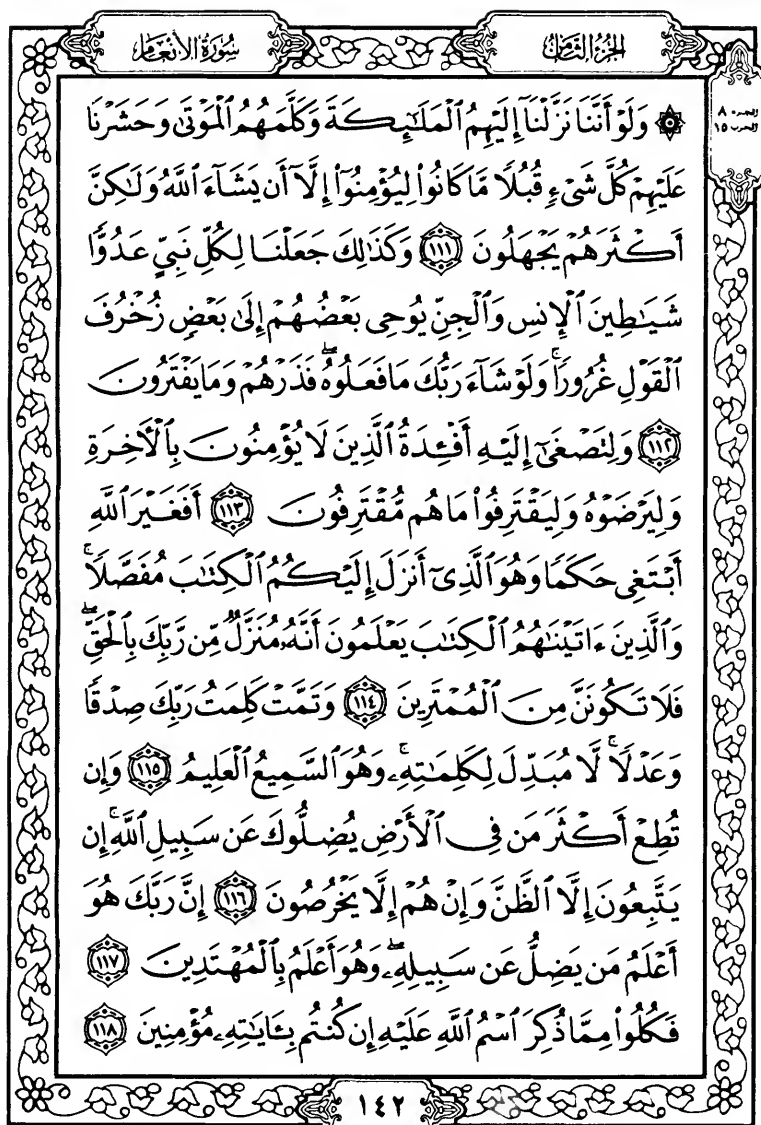 الجزء الثامن
سورة الأنعام
الجزء ٨
الحزب ١٥
۞ وَلَوْ أَنَّنَا نَزَّلْنَآ إِلَيْهِمُ ٱلْمَلَٰٓئِكَةَ وَكَلَّمَهُمُ ٱلْمَوْتَىٰ وَحَشَرْنَا
عَلَيْهِمْ كُلَّ شَىْءٍ قُبُلًا مَّا كَانُوا۟ لِيُؤْمِنُوٓا۟ إِلَّآ أَن يَشَآءَ ٱللَّهُ وَلَٰكِنَّ
أَكْثَرَهُمْ يَجْهَلُونَ ﴿١١١﴾ وَكَذَٰلِكَ جَعَلْنَا لِكُلِّ نَبِىٍّ عَدُوًّا
شَيَٰطِينَ ٱلْإِنسِ وَٱلْجِنِّ يُوحِى بَعْضُهُمْ إِلَىٰ بَعْضٍ زُخْرُفَ
ٱلْقَوْلِ غُرُورًا ۚ وَلَوْ شَآءَ رَبُّكَ مَا فَعَلُوهُ ۖ فَذَرْهُمْ وَمَا يَفْتَرُونَ
﴿١١٢﴾ وَلِتَصْغَىٰٓ إِلَيْهِ أَفْـِٔدَةُ ٱلَّذِينَ لَا يُؤْمِنُونَ بِٱلْـَٔاخِرَةِ
وَلِيَرْضَوْهُ وَلِيَقْتَرِفُوا۟ مَا هُم مُّقْتَرِفُونَ ﴿١١٣﴾ أَفَغَيْرَ ٱللَّهِ
أَبْتَغِى حَكَمًا وَهُوَ ٱلَّذِىٓ أَنزَلَ إِلَيْكُمُ ٱلْكِتَٰبَ مُفَصَّلًا ۚ
وَٱلَّذِينَ ءَاتَيْنَٰهُمُ ٱلْكِتَٰبَ يَعْلَمُونَ أَنَّهُۥ مُنَزَّلٌ مِّن رَّبِّكَ بِٱلْحَقِّ ۖ
فَلَا تَكُونَنَّ مِنَ ٱلْمُمْتَرِينَ ﴿١١٤﴾ وَتَمَّتْ كَلِمَتُ رَبِّكَ صِدْقًا
وَعَدْلًا ۚ لَّا مُبَدِّلَ لِكَلِمَٰتِهِۦ ۚ وَهُوَ ٱلسَّمِيعُ ٱلْعَلِيمُ ﴿١١٥﴾ وَإِن
تُطِعْ أَكْثَرَ مَن فِى ٱلْأَرْضِ يُضِلُّوكَ عَن سَبِيلِ ٱللَّهِ ۚ إِن
يَتَّبِعُونَ إِلَّا ٱلظَّنَّ وَإِنْ هُمْ إِلَّا يَخْرُصُونَ ﴿١١٦﴾ إِنَّ رَبَّكَ هُوَ
أَعْلَمُ مَن يَضِلُّ عَن سَبِيلِهِۦ ۖ وَهُوَ أَعْلَمُ بِٱلْمُهْتَدِينَ ﴿١١٧﴾
فَكُلُوا۟ مِمَّا ذُكِرَ ٱسْمُ ٱللَّهِ عَلَيْهِ إِن كُنتُم بِـَٔايَٰتِهِۦ مُؤْمِنِينَ ﴿١١٨﴾
١٤٢